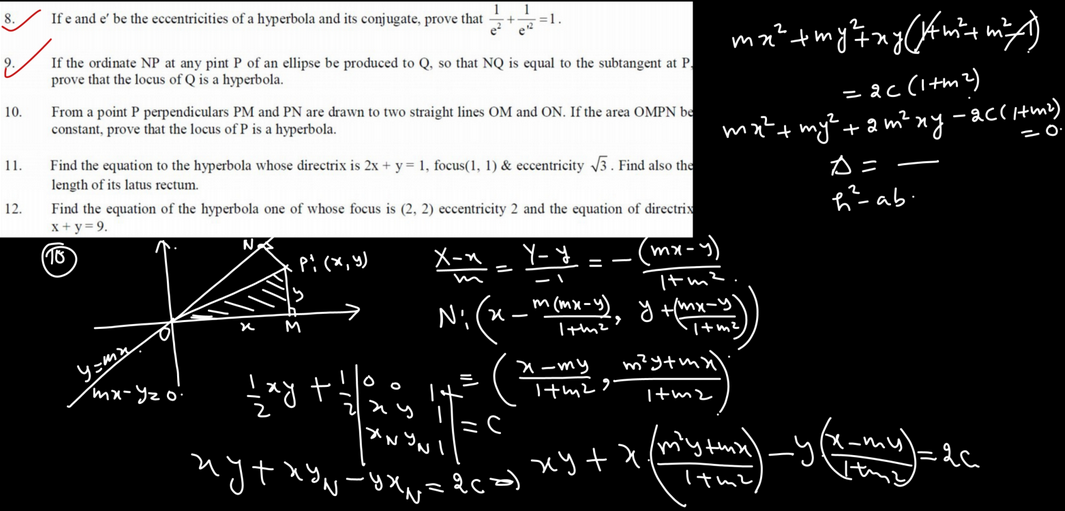 8. If e and e′ be the eccentricities of a hyperbola and its conjugate, prove that 1/e² + 1/e′² = 1.
9. If the ordinate NP at any pint P of an ellipse be produced to Q, so that NQ is equal to the subtangent at P,
prove that the locus of Q is a hyperbola.
10. From a point P perpendiculars PM and PN are drawn to two straight lines OM and ON. If the area OMPN be
constant, prove that the locus of P is a hyperbola.
11. Find the equation to the hyperbola whose directrix is 2x + y = 1, focus(1, 1) & eccentricity √3. Find also the
length of its latus rectum.
12. Find the equation of the hyperbola one of whose focus is (2, 2) eccentricity 2 and the equation of directrix
x + y = 9.
mx² + my² + xy(1+m²+m²-1)
= 2c(1+m²)
mx² + my² + 2m²xy - 2c(1+m²)
= 0.
Δ = —
h² - ab.
10
N
P: (x, y)
y
O
x
M
y = mx.
mx - y = 0.
(X-x)/m = (Y-y)/-1 = -(mx-y)/(1+m²).
N: (x - m(mx-y)/(1+m²), y + (mx-y)/(1+m²))
= ((x-my)/(1+m²), (m²y+mx)/(1+m²))
1/2 xy + 1/2 | 0 0 1 |
| x y 1 | = c
| x_N y_N 1 |
xy + xy_N - yx_N = 2c ⇒ xy + x·((m²y+mx)/(1+m²)) - y((x-my)/(1+m²)) = 2c